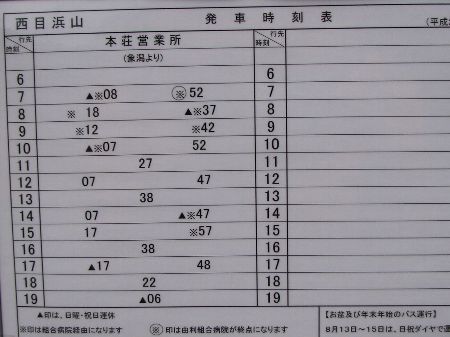 西目浜山 発車時刻表 (平成
行先 時刻 本荘営業所 行先 時刻
(象潟より)
6 6
7 ▲※08 ※52 7
8 ※18 ▲※37 8
9 ※12 ※42 9
10 ▲※07 52 10
11 27 11
12 07 47 12
13 38 13
14 07 ▲※47 14
15 17 ※57 15
16 38 16
17 ▲17 48 17
18 22 18
19 ▲06 19
▲印は、日曜・祝日運休 【お盆及び年末年始のバス運行】
※印は組合病院経由になります ※印は由利組合病院が終点になります 8月13日~15日は、日祝ダイヤで運